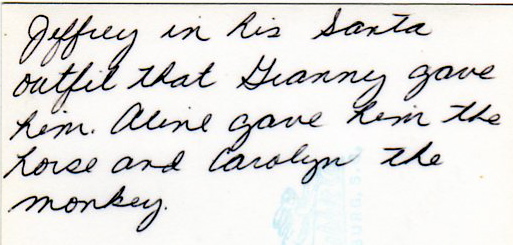 Jeffrey in his Santa
outfit that Granny gave
him. Aline gave him the
horse and Carolyn the
monkey.